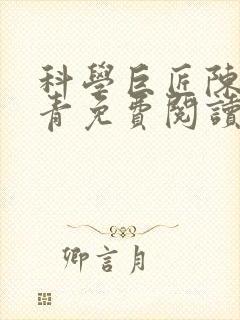 科學巨匠陳
青免費閱讀
卿言月